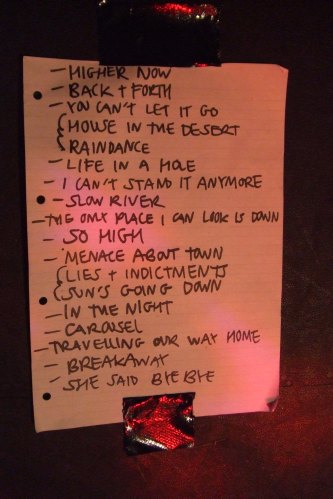 - HIGHER NOW
- BACK + FORTH
- YOU CAN'T LET IT GO
HOUSE IN THE DESERT
RAINDANCE
- LIFE IN A HOLE
- I CAN'T STAND IT ANYMORE
- SLOW RIVER
- THE ONLY PLACE I CAN LOOK IS DOWN
- SO HIGH
- MENACE ABOUT TOWN
LIES + INDICTMENTS
SUN'S GOING DOWN
- IN THE NIGHT
- CAROUSEL
- TRAVELLING OUR WAY HOME
- BREAKAWAY
- SHE SAID BYE BYE